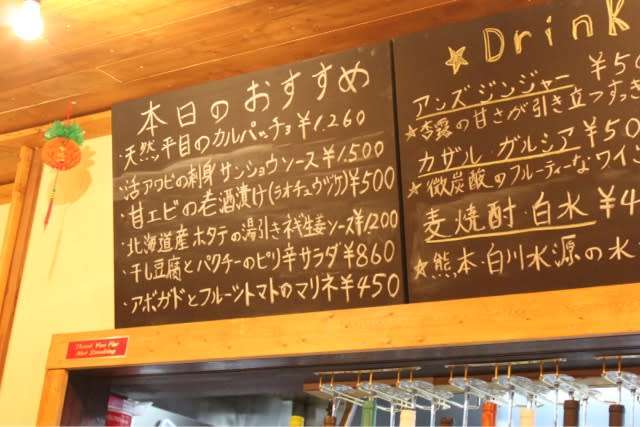 本日のおすすめ
・天然平目のカルパッチョ ¥1.260
・活アワビの刺身サンショウソース ¥1.500
・甘エビの老酒漬け(ラオチュウヅケ) ¥500
・北海道産ホタテの湯引きネギ生姜ソース ¥1200
・干し豆腐とパクチーのピリ辛サラダ ¥860
・アボガドとフルーツトマトのマリネ ¥450
☆Drink
アンズジンジャー ¥50
★杏露の甘さが引き立つすっき
カザル ガルシア ¥50
★微炭酸のフルーティーなワイン
麦焼酎・白水 ¥4
★熊本・白川水源の水
Thank You For
Not Smoking